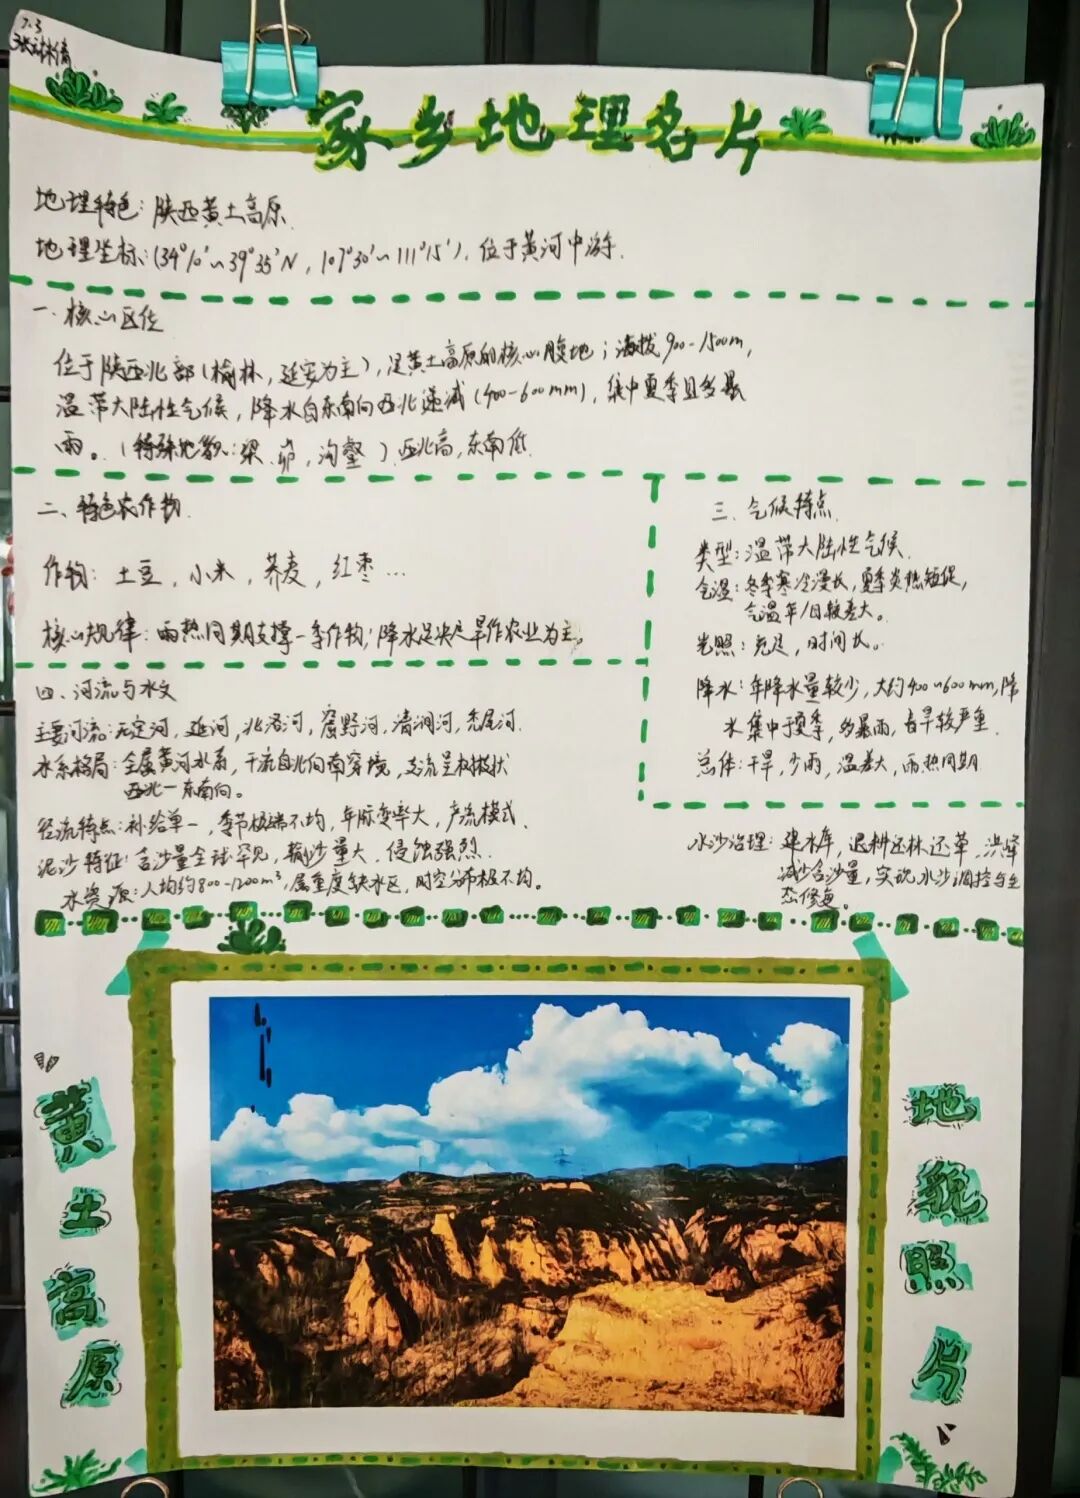 7.3
家乡地理名片
地理特色：陕西黄土高原
地理坐标：(34°10′~39°35′N，107°30′~111°15′)，位于黄河中游.
一、核心区位
位于陕西北部(榆林，延安为主)，是黄土高原的核心腹地；海拔900-1500m，
温带大陆性气候，降水自东南向西北递减(400-600mm)，集中夏季且多暴
雨。(特殊地貌：梁、峁，沟壑)西北高，东南低
二、特色农作物
作物：土豆，小米，荞麦，红枣...
核心规律：雨热同期支撑一季作物；降水足决定旱作农业为主。
三、气候特点
类型：温带大陆性气候
气温：冬季寒冷漫长，夏季炎热短促，
气温年/日较差大。
光照：充足，时间长。
降水：年降水量较少，大约400~600mm，降
水集中于夏季，多暴雨，春旱较严重.
总体：干旱，少雨，温差大，雨热同期
四、河流与水文
主要河流：无定河，延河，北洛河，窟野河，清涧河，秃尾河.
水系格局：全属黄河水系，干流自北向南穿境，支流呈树枝状
西北一东南向。
径流特点：补给单一，季节极端不均，年际变率大，产流模式.
泥沙特征：含沙量全球罕见，输沙量大，侵蚀强烈.
水资源：人均约800-1200m³，属重度缺水区，时空分布极不均。
水沙治理：建水库，退耕还林还草，洪峰
减少含沙量，实现水沙调控与生
态修复。
黄土高原
地貌照片